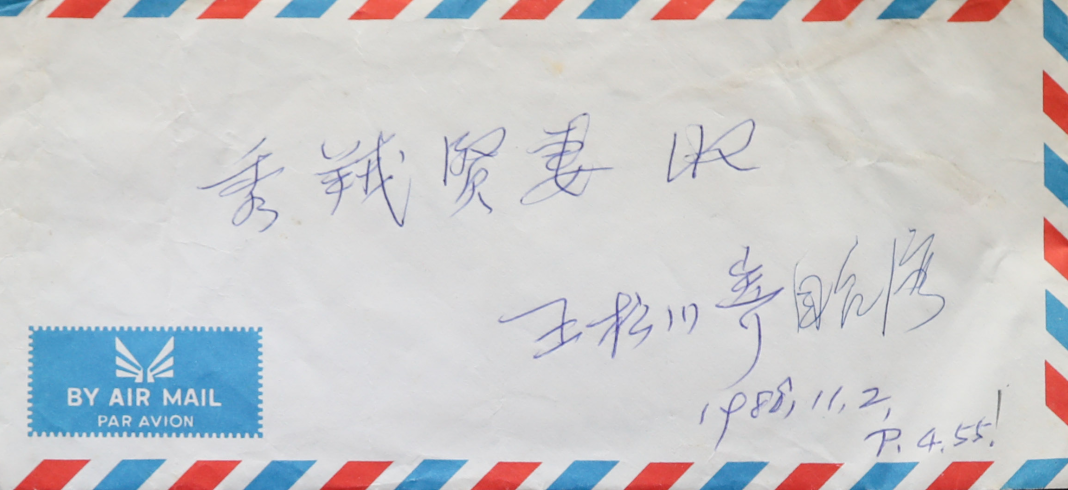 秀 贤妻 收
王松川寄自台湾
1988, 11, 2,
P. 4.55!
BY AIR MAIL
PAR AVION